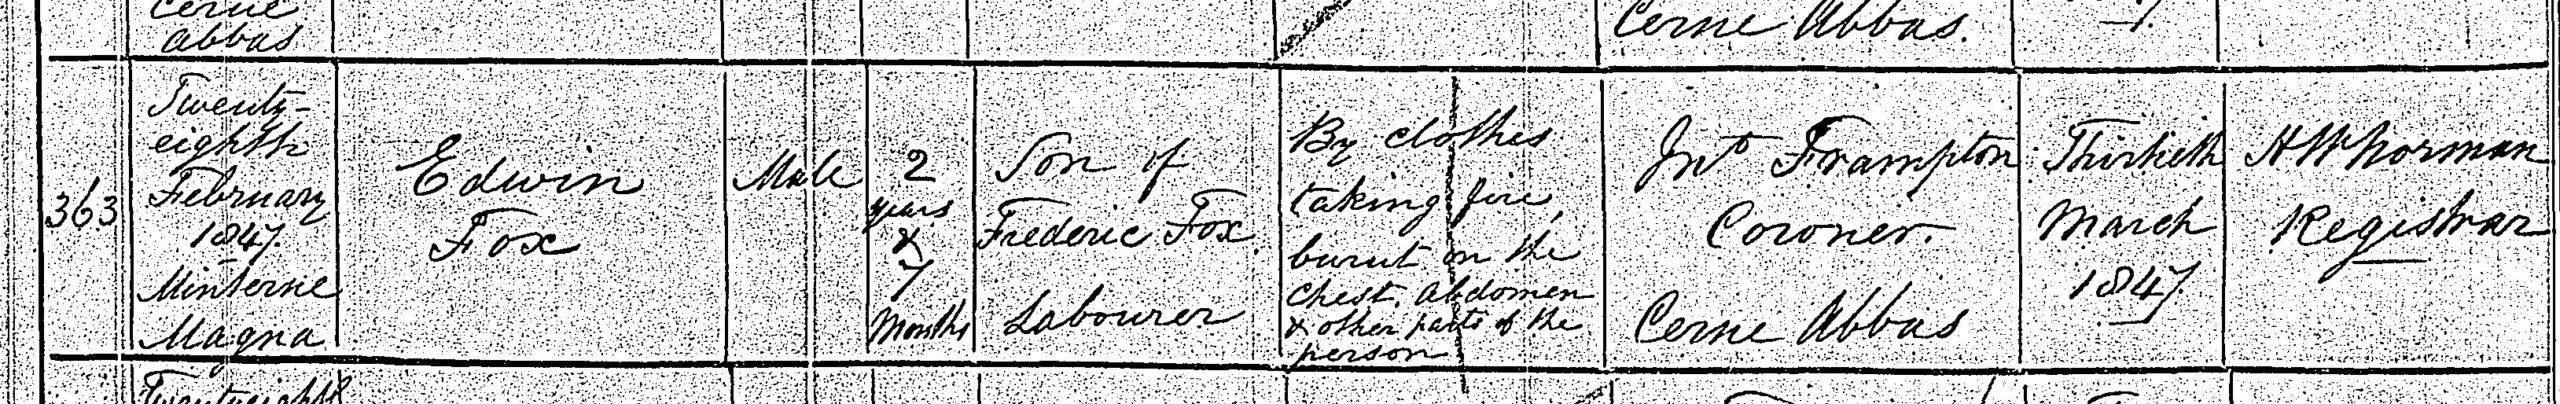 Cerne
Abbas
Cerne Abbas.
363
Twenty-
eighth
February
1847.
Minterne
Magna
Edwin
Fox
Male
2
years
&
7
Months
Son of
Frederic Fox
Labourer
By clothes
taking fire,
burnt on the
chest, abdomen
& other parts of the
person
Jno Frampton
Coroner.
Cerne Abbas
Thirtieth
March
1847.
H W Norman
Registrar